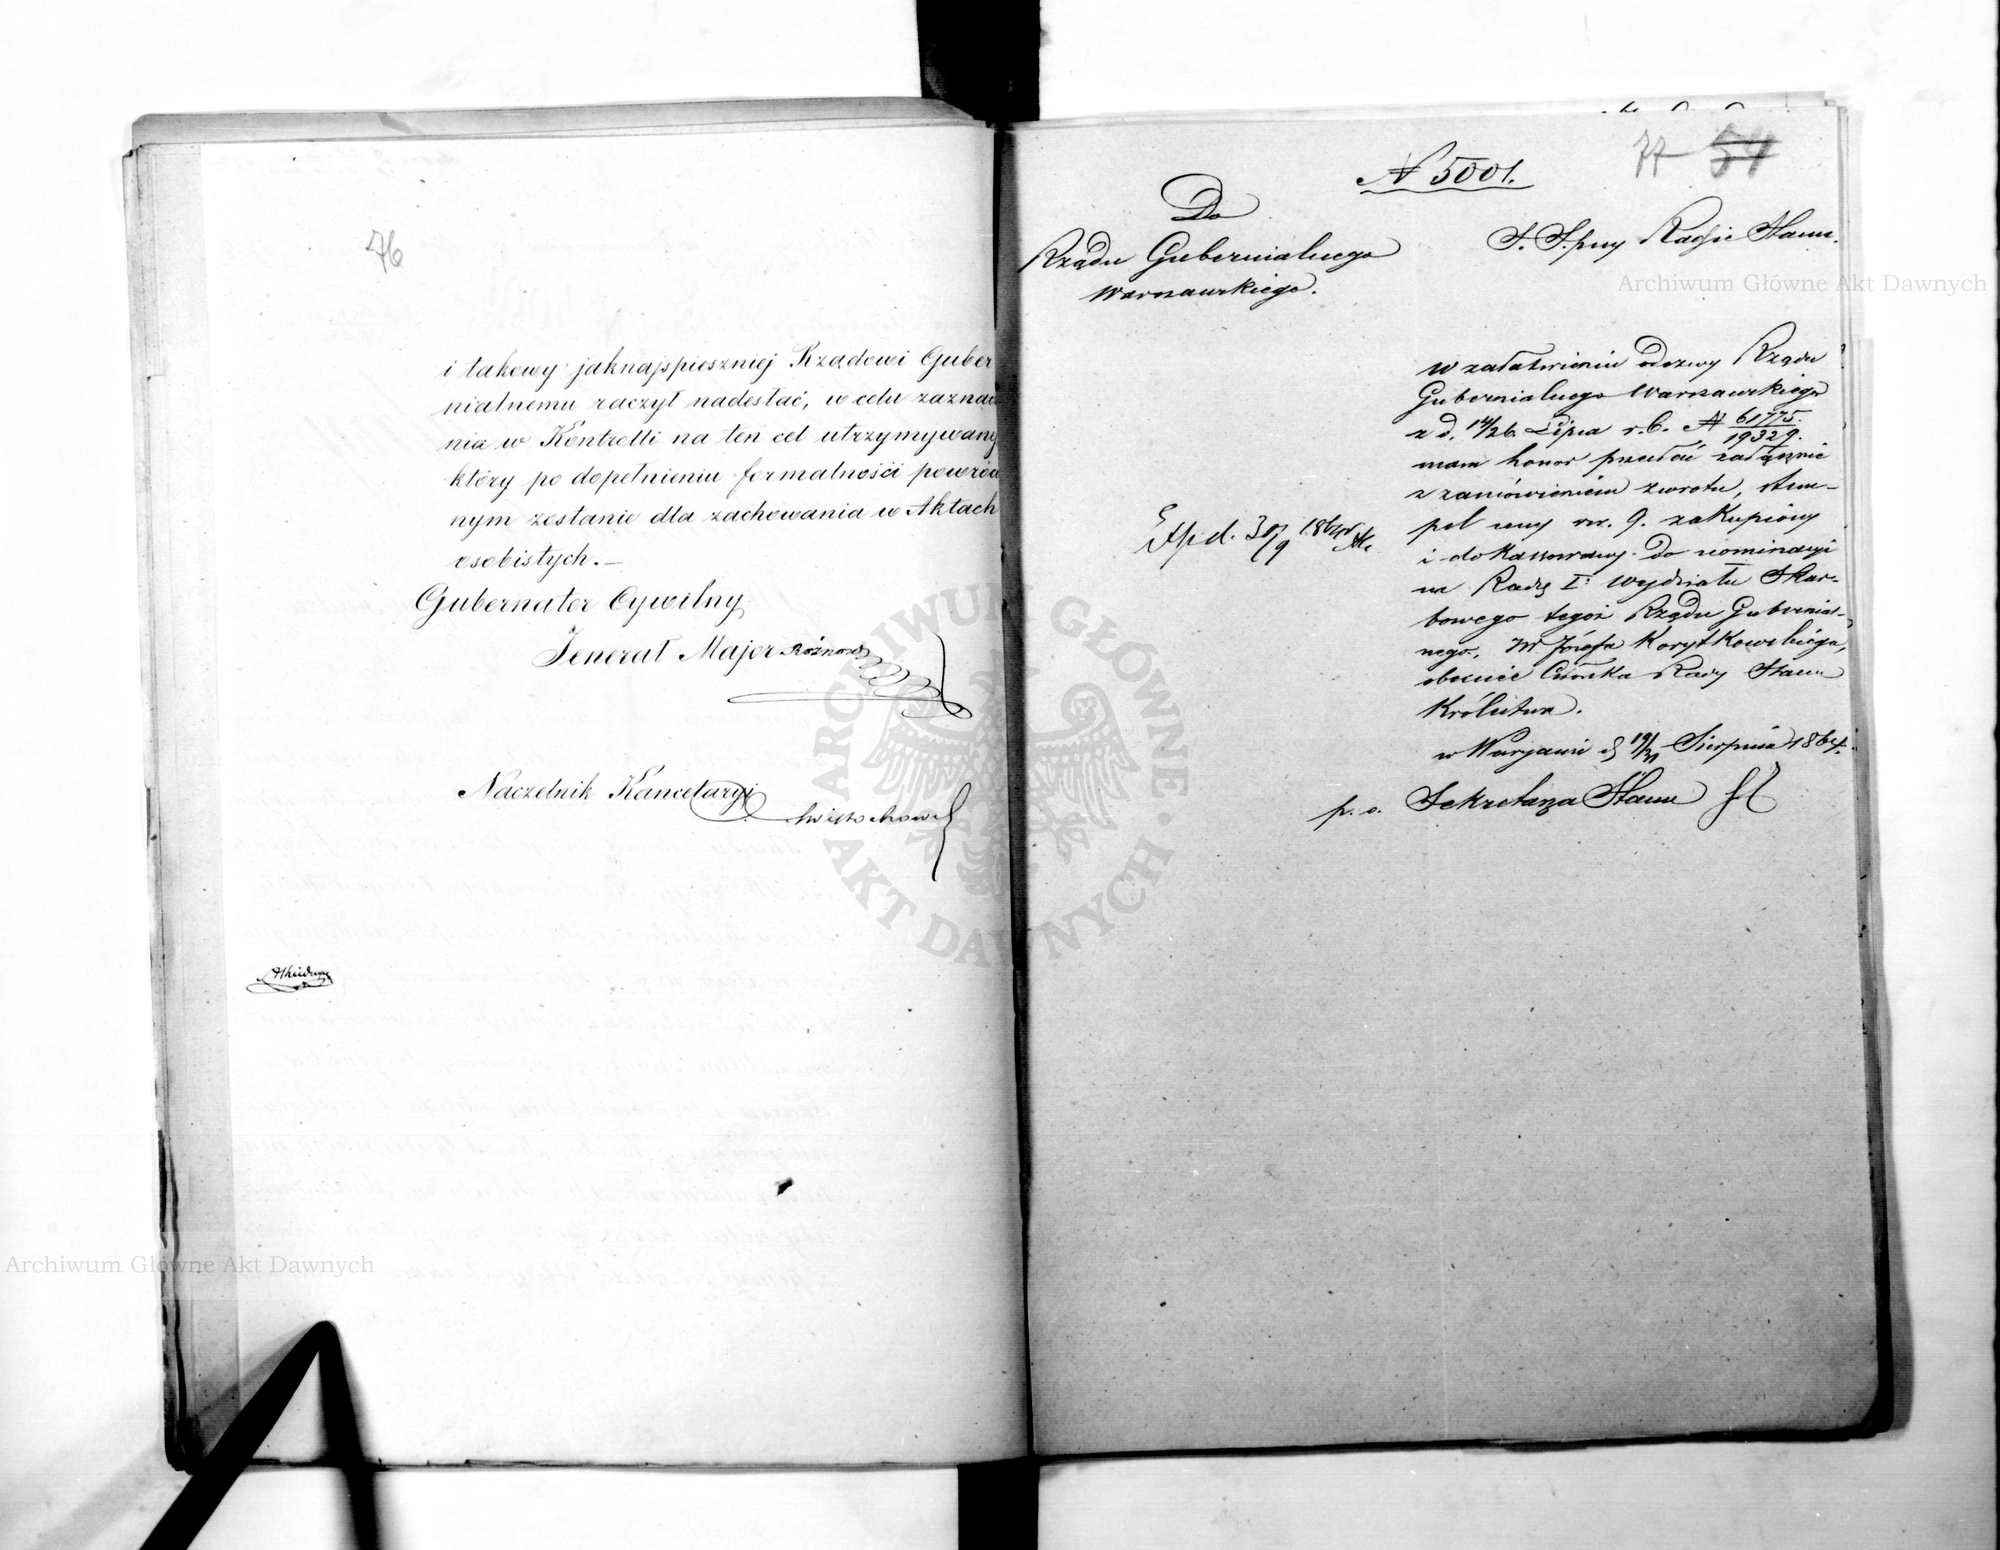 76
i takowy jaknajspieszniej Rządowi Guber
nialnemu raczył nadesłać, w celu zazna
nia w Kontrolli na ten cel utrzymywany
który po dopełnieniu formalności powró
nym zostanie dla zachowania w Aktach
osobistych. —
Gubernator Cywilny
Jenerał Major Rożnow
Naczelnik Kancelaryi
77 54
N 5001.
Do
Rządu Gubernialnego
Warszawskiego.
Radzie Stanu.
w załatwieniu odezwy Rządu
Gubernialnego Warszawskiego
z d. 14/26 Lipca r. b. N 61775/19329.
mam honor przesłać załącznie
z zamówieniem zwrotu, stem-
pel ceny rs. 9. zakupiony
i dokassowany do nominacyi
na Radzę I: Wydziału Skar-
bowego tegoż Rządu Gubernial-
nego, JW Józefa Korytkowskiego,
obecnie Członka Rady Stanu
Królestwa.
w Warszawie d 19/31 Sierpnia 1864.
p. o. Sekretarza Stanu
Exped. 30/9 1864
Archiwum Główne Akt Dawnych
Archiwum Główne Akt Dawnych
ARCHIWUM GŁÓWNE AKT DAWNYCH